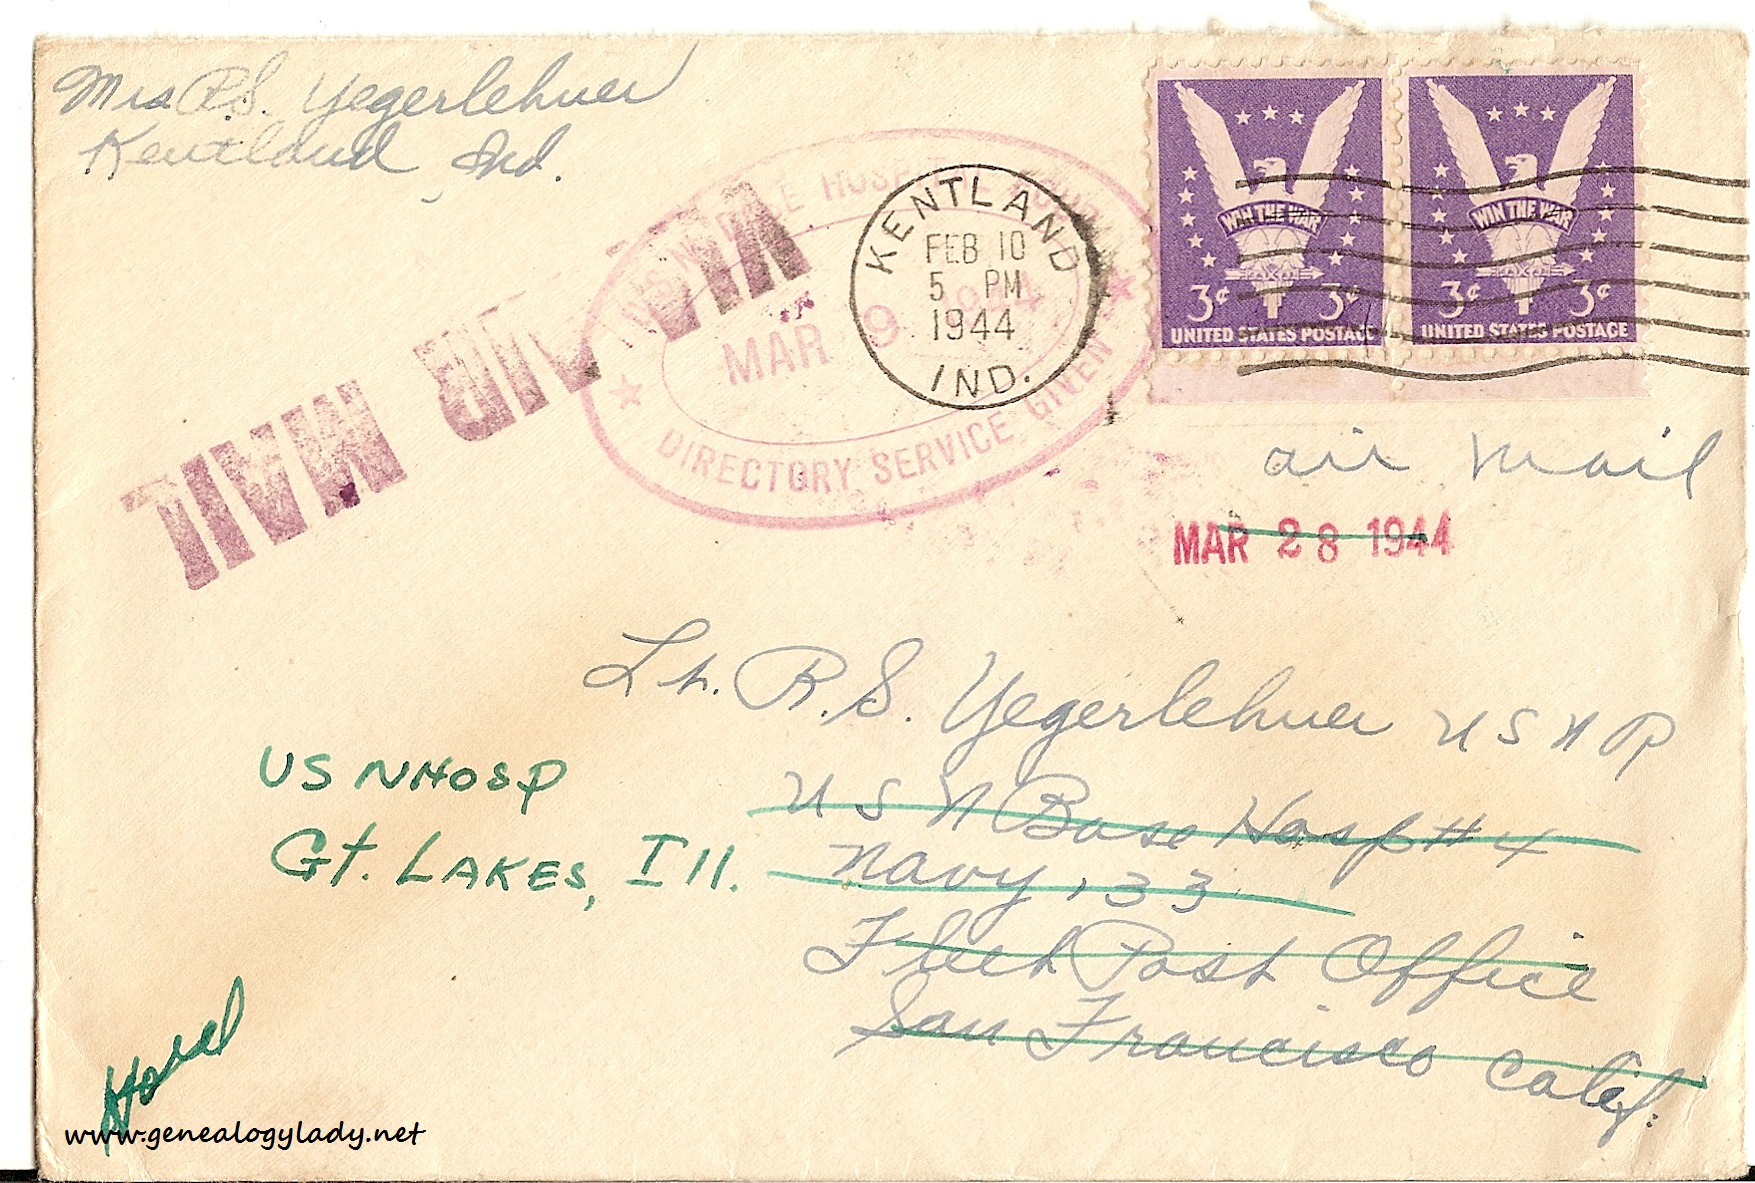 Mrs R.S. Yegerlehner
Kentland, Ind.
VIA AIR MAIL
BASE HOSP
MAR 9 1944
DIRECTORY SERVICE GIVEN
KENTLAND
FEB 10
5 PM
1944
IND.
WIN THE WAR
3¢ 3¢
UNITED STATES POSTAGE
WIN THE WAR
3¢ 3¢
UNITED STATES POSTAGE
air mail
MAR 28 1944
Lt. R.S. Yegerlehner USNR
USN Base Hosp #4
Navy 133
Fleet Post Office
San Francisco Calif.
US NHOSP
Gt. LAKES, Ill.
www.genealogylady.net